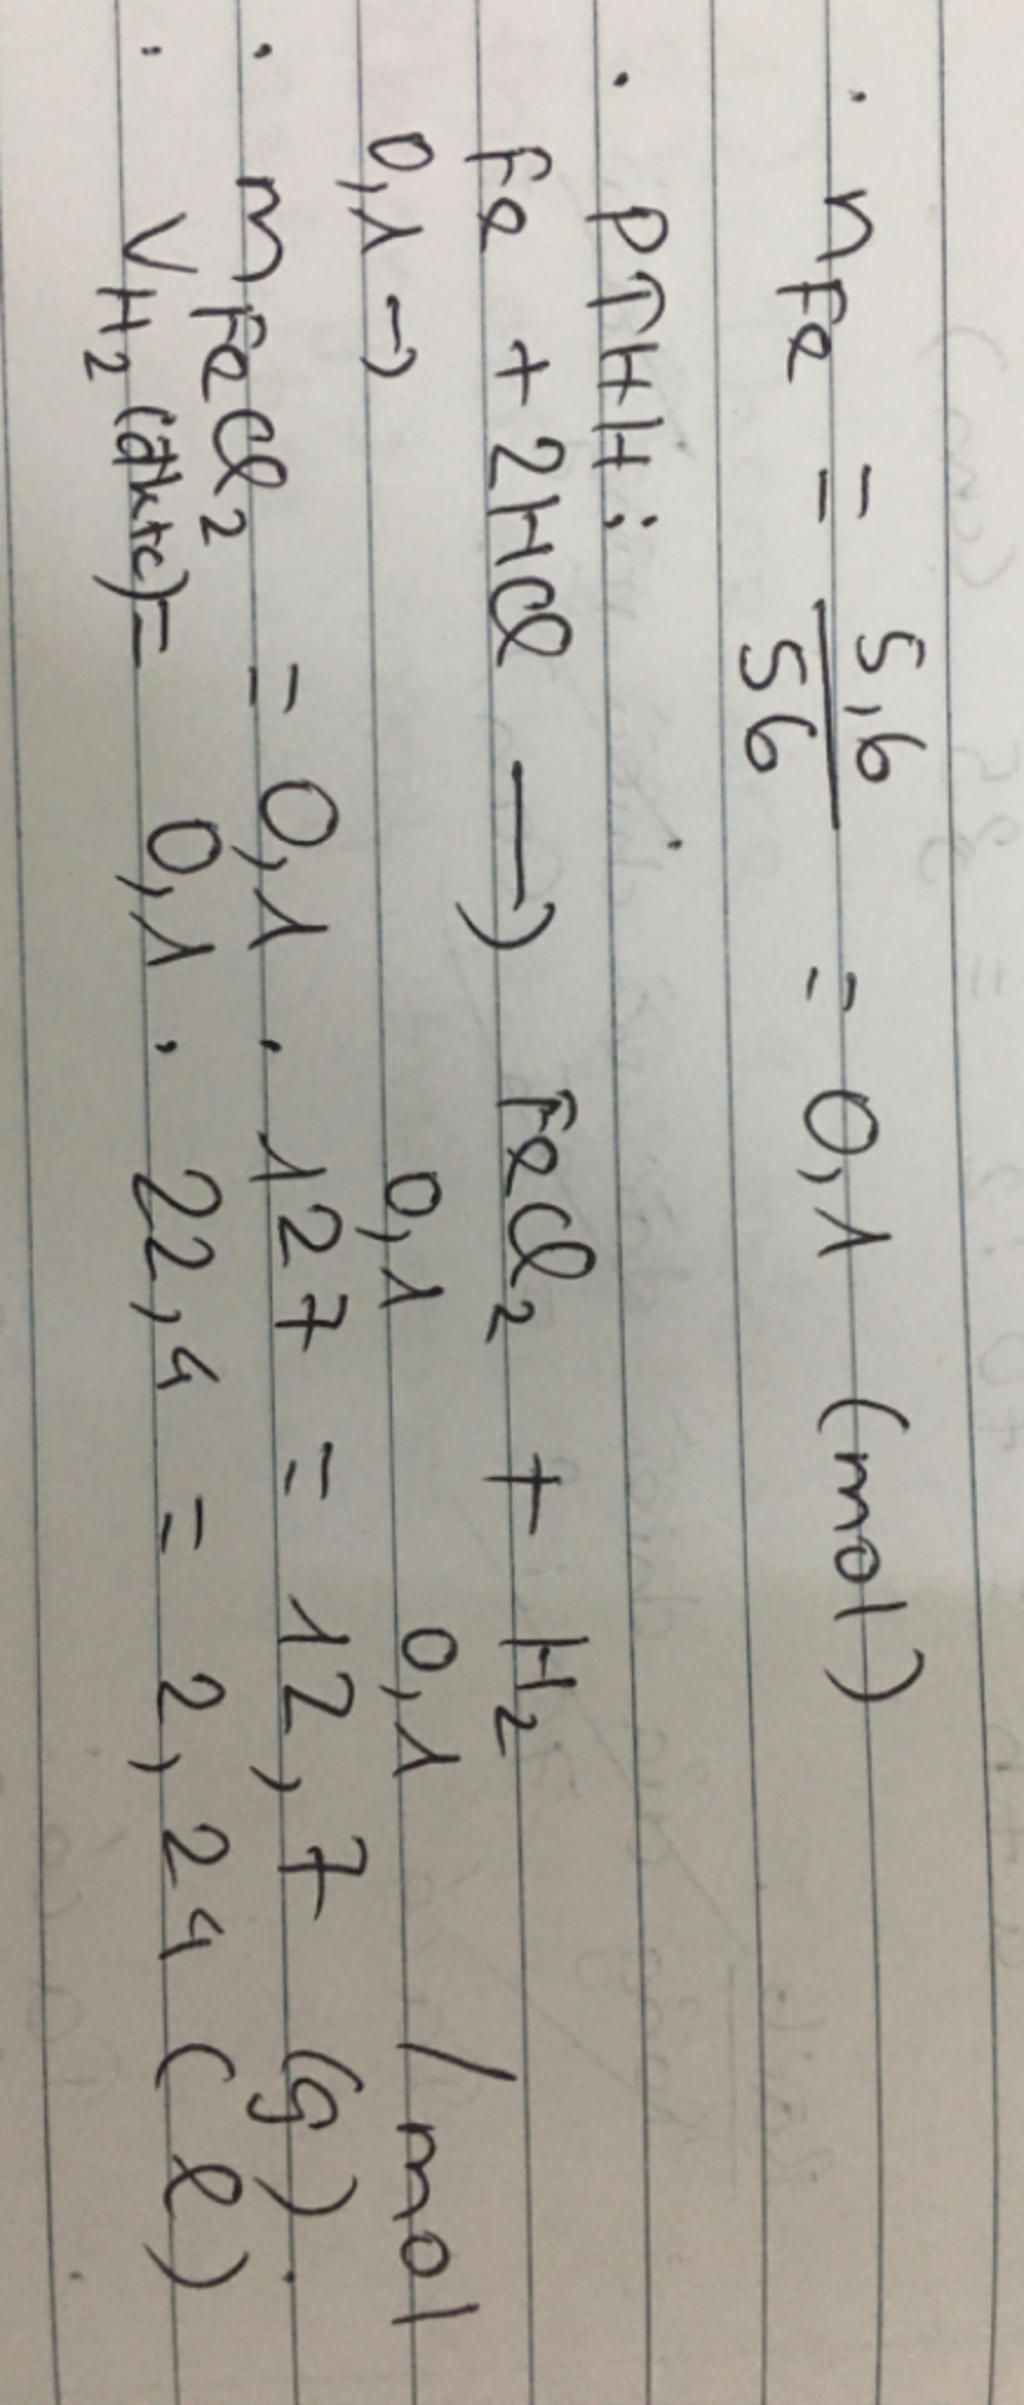 . nFe = 5,6/56 = 0,1 (mol)
. PTHH:
Fe + 2HCl → FeCl₂ + H₂
0,1 → 0,1 0,1 / mol
. mFeCl₂ = 0,1 . 127 = 12,7 (g).
. VH₂(đktc) = 0,1 . 22,4 = 2,24 (l)